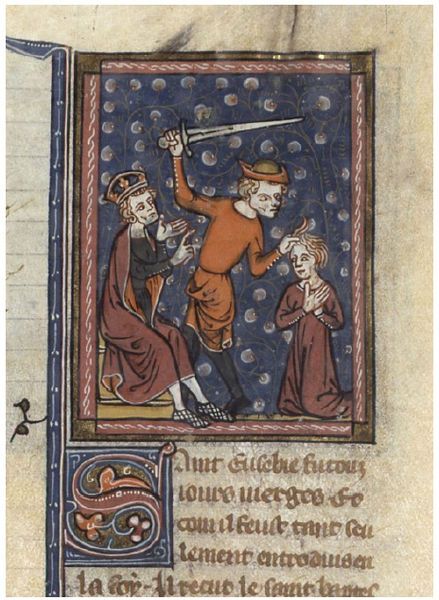 Saint Eusebie fu touz
iours vierges Et
com il feust tant seu
lement entroduis en
la foy. Il recut le saint